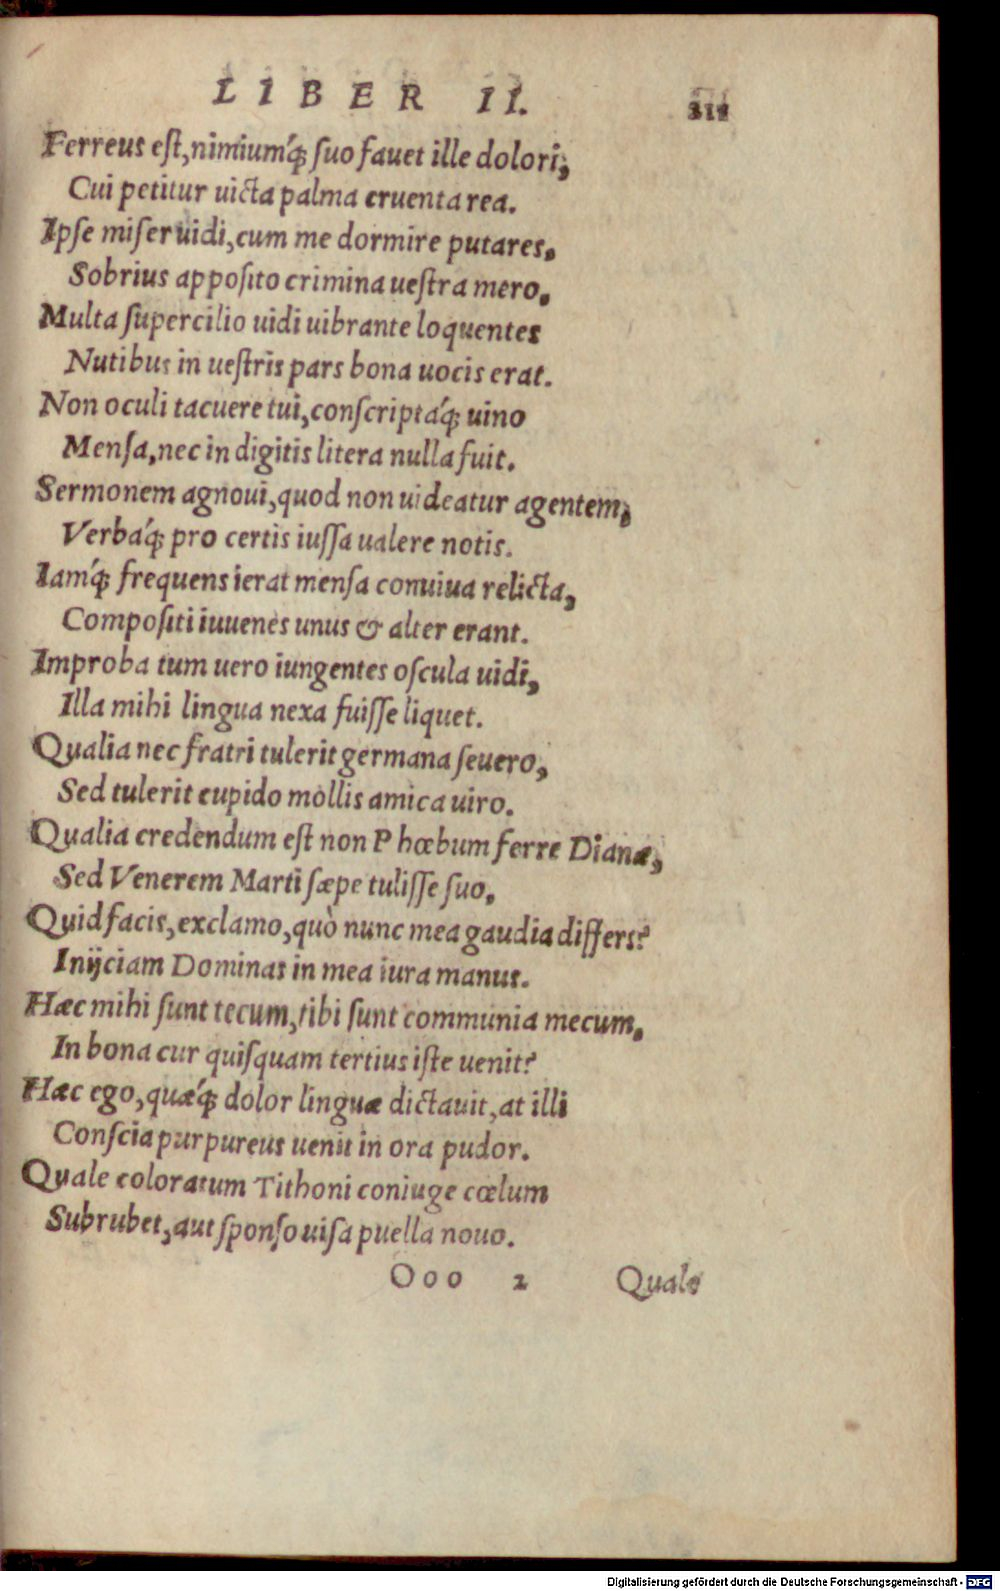 LIBER II. 211
Ferreus eſt, nimiumq́; ſuo fauet ille dolori,
Cui petitur uicta palma cruenta rea.
Ipſe miſer uidi, cum me dormire putares,
Sobrius appoſito crimina ueſtra mero,
Multa ſupercilio uidi uibrante loquentes
Nutibus in ueſtris pars bona uocis erat.
Non oculi tacuere tui, conſcriptáq; uino
Menſa, nec in digitis litera nulla fuit.
Sermonem agnoui, quod non uideatur agentem,
Verbáq; pro certis iuſſa ualere notis.
Iamq́; frequens ierat menſa conuiua relicta,
Compoſiti iuuenes unus & alter erant.
Improba tum uero iungentes oſcula uidi,
Illa mihi lingua nexa fuiſſe liquet.
Qualia nec fratri tulerit germana ſeuero,
Sed tulerit cupido mollis amica uiro.
Qualia credendum eſt non Phœbum ferre Dianæ,
Sed Venerem Marti ſæpe tuliſſe ſuo,
Quid facis, exclamo, quò nunc mea gaudia differs?
Inijciam Dominas in mea iura manus.
Hæc mihi ſunt tecum, tibi ſunt communia mecum,
In bona cur quiſquam tertius iſte uenit?
Hæc ego, quæq́; dolor linguæ dictauit, at illi
Conſcia purpureus uenit in ora pudor.
Quale coloratum Tithoni coniuge cœlum
Subrubet, aut ſponſo uiſa puella nouo.
Ooo 2 Quale
Digitalisierung gefördert durch die Deutsche Forschungsgemeinschaft - DFG